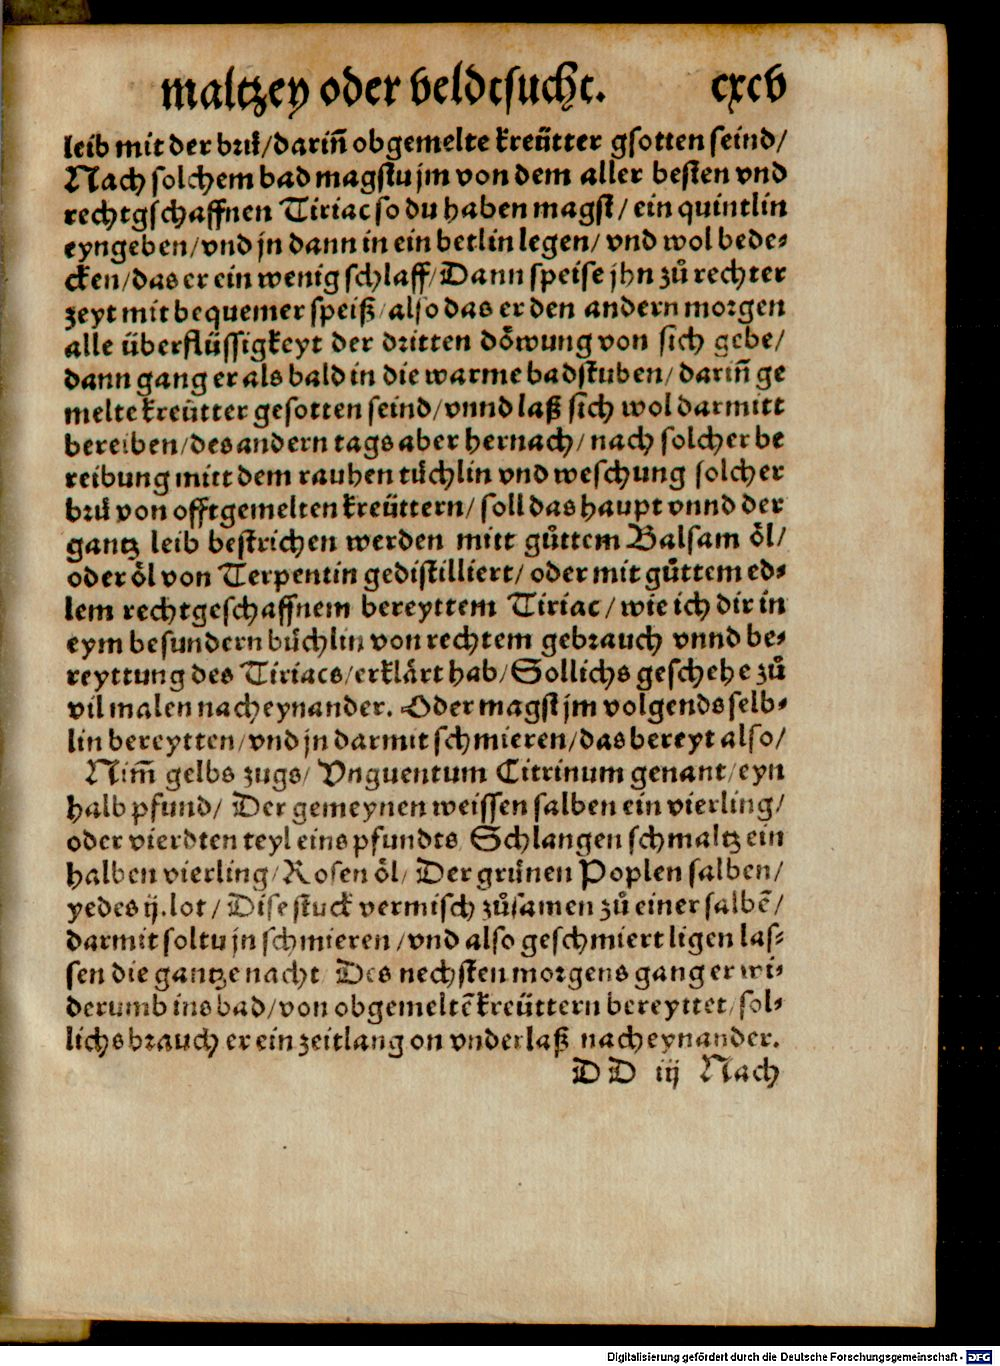 maltzey oder veldtsucht. cxcv
leib mit der brů/darin̄ obgemelte kreütter gsotten seind/
Nach solchem bad magstu jm von dem aller besten vnd
rechtgschaffnen Tiriac so du haben magst/ ein quintlin
eyngeben/vnd jn dann in ein betlin legen/ vnd wol bede⸗
cken/das er ein wenig schlaff/Dann speise jhn zů rechter
zeyt mit bequemer speiß/also das er den andern morgen
alle überflüssigkeyt der dritten dǒwung von sich gebe/
dann gang er als bald in die warme badstuben/ darin̄ ge
melte kreütter gesotten seind/vnnd laß sich wol darmitt
bereiben/des andern tags aber hernach/ nach solcher be
reibung mitt dem rauhen tůchlin vnd weschung solcher
brů von offtgemelten kreüttern/ soll das haupt vnnd der
gantz leib bestrichen werden mitt gůttem Balsam ǒl/
oder ǒl von Terpentin gedistilliert/ oder mit gůttem ed⸗
lem rechtgeschaffnem bereyttem Tiriac/wie ich dir in
eym besundern bůchlin von rechtem gebrauch vnnd be⸗
reyttung des Tiriacs/erklårt hab/Sollichs geschehe zů
vil malen nacheynander. Oder magst jm volgends selb⸗
lin bereytten/vnd jn darmit schmieren/das bereyt also/
Nim̄ gelbs zugs/ Vnguentum Citrinum genant/eyn
halb pfund/ Der gemeynen weissen salben ein vierling/
oder vierdten teyl eins pfundts Schlangen schmaltz ein
halben vierling/Rosen ǒl/ Der grůnen Poplen salben/
yedes ij.lot/ Dise stuck vermisch zůsamen zů einer salbē/
darmit soltu jn schmieren/vnd also geschmiert ligen las⸗
sen die gantze nacht Des nechsten morgens gang er wi⸗
derumb ins bad/von obgemeltē kreüttern bereyttet/sol⸗
lichs brauch er ein zeitlang on vnderlaß nacheynander.
DD iij Nach
Digitalisierung gefördert durch die Deutsche Forschungsgemeinschaft - DFG